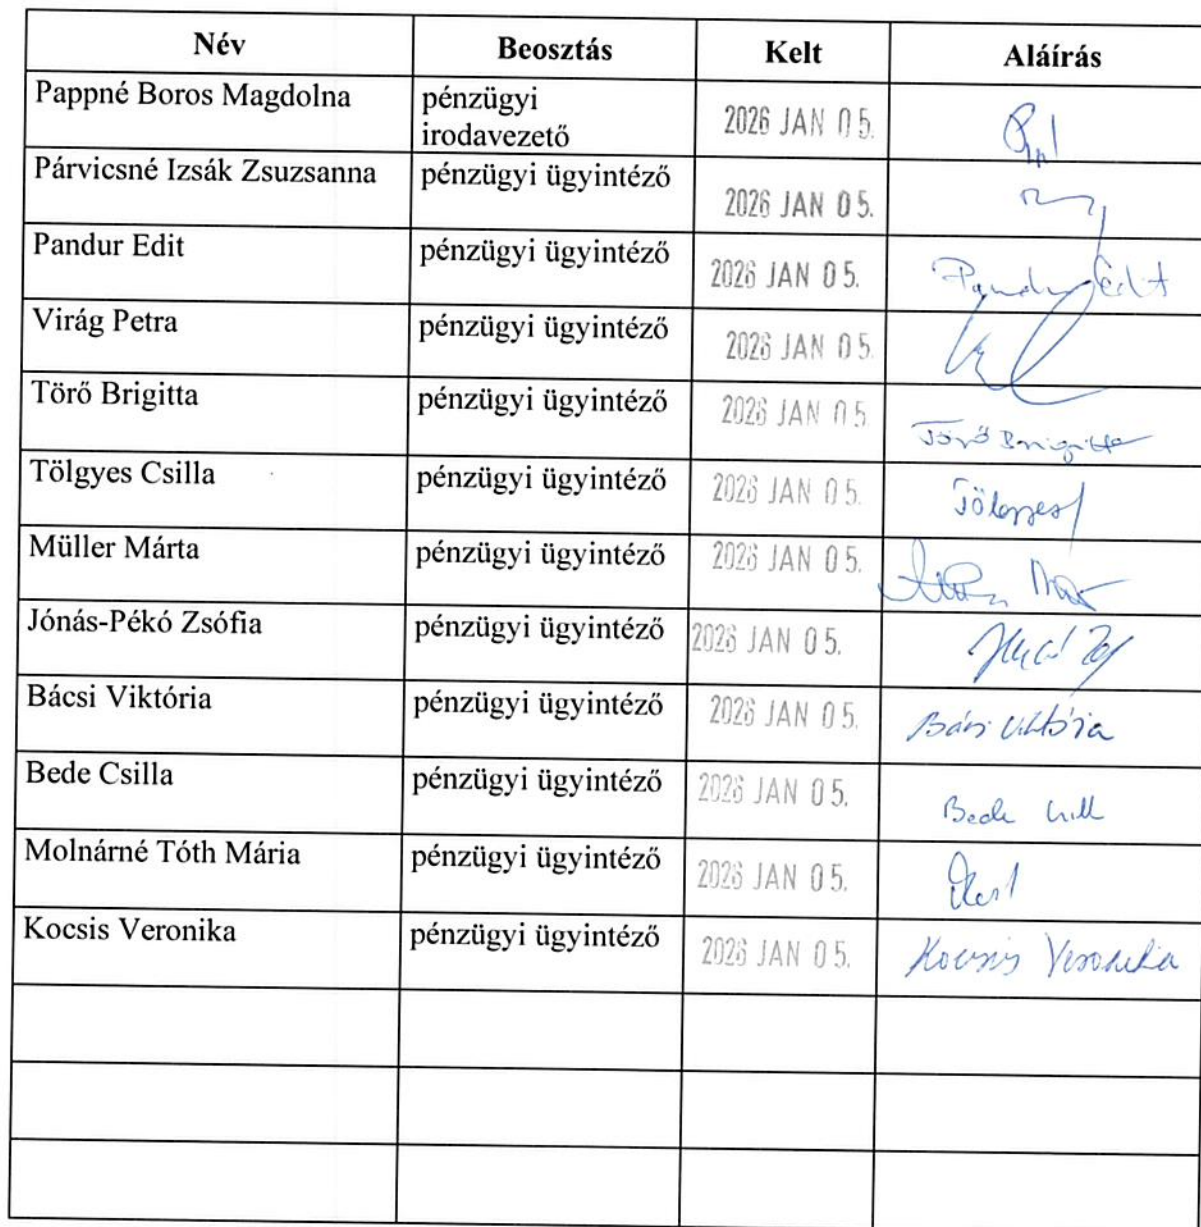 Név Beosztás Kelt Aláírás
Pappné Boros Magdolna pénzügyi
irodavezető 2026 JAN 05.
Párvicsné Izsák Zsuzsanna pénzügyi ügyintéző 2026 JAN 05.
Pandur Edit pénzügyi ügyintéző 2026 JAN 05. Pandur Edit
Virág Petra pénzügyi ügyintéző 2026 JAN 05.
Törő Brigitta pénzügyi ügyintéző 2026 JAN 05. Törő Brigitta
Tölgyes Csilla pénzügyi ügyintéző 2026 JAN 05. Tölgyes
Müller Márta pénzügyi ügyintéző 2026 JAN 05.
Jónás-Pékó Zsófia pénzügyi ügyintéző 2026 JAN 05.
Bácsi Viktória pénzügyi ügyintéző 2026 JAN 05. Bácsi Viktória
Bede Csilla pénzügyi ügyintéző 2026 JAN 05. Bede
Molnárné Tóth Mária pénzügyi ügyintéző 2026 JAN 05.
Kocsis Veronika pénzügyi ügyintéző 2026 JAN 05. Kocsis Veronika